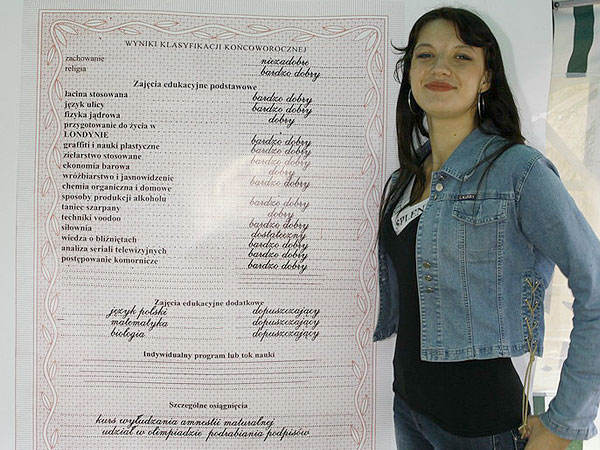 WYNIKI KLASYFIKACJI KOŃCOWOROCZNEJ
zachowanie niezadobre
religia bardzo dobry
Zajęcia edukacyjne podstawowe
łacina stosowana bardzo dobry
język ulicy bardzo dobry
fizyka jądrowa dobry
przygotowanie do życia w
LONDYNIE bardzo dobry
graffiti i nauki plastyczne bardzo dobry
zielarstwo stosowane bardzo dobry
ekonomia barowa dobry
wróżbiarstwo i jasnowidzenie bardzo dobry
chemia organiczna i domowe
sposoby produkcji alkoholu bardzo dobry
taniec szarpany dobry
techniki voodoo bardzo dobry
siłownia dostateczny
wiedza o bliźniętach bardzo dobry
analiza seriali telewizyjnych bardzo dobry
postępowanie komornicze bardzo dobry
Zajęcia edukacyjne dodatkowe
język polski dopuszczający
matematyka dopuszczający
biologia dopuszczający
Indywidualny program lub tok nauki
Szczególne osiągnięcia
kurs wyłudzania amnestii maturalnej
udział w olimpiadzie podrabiania podpisów